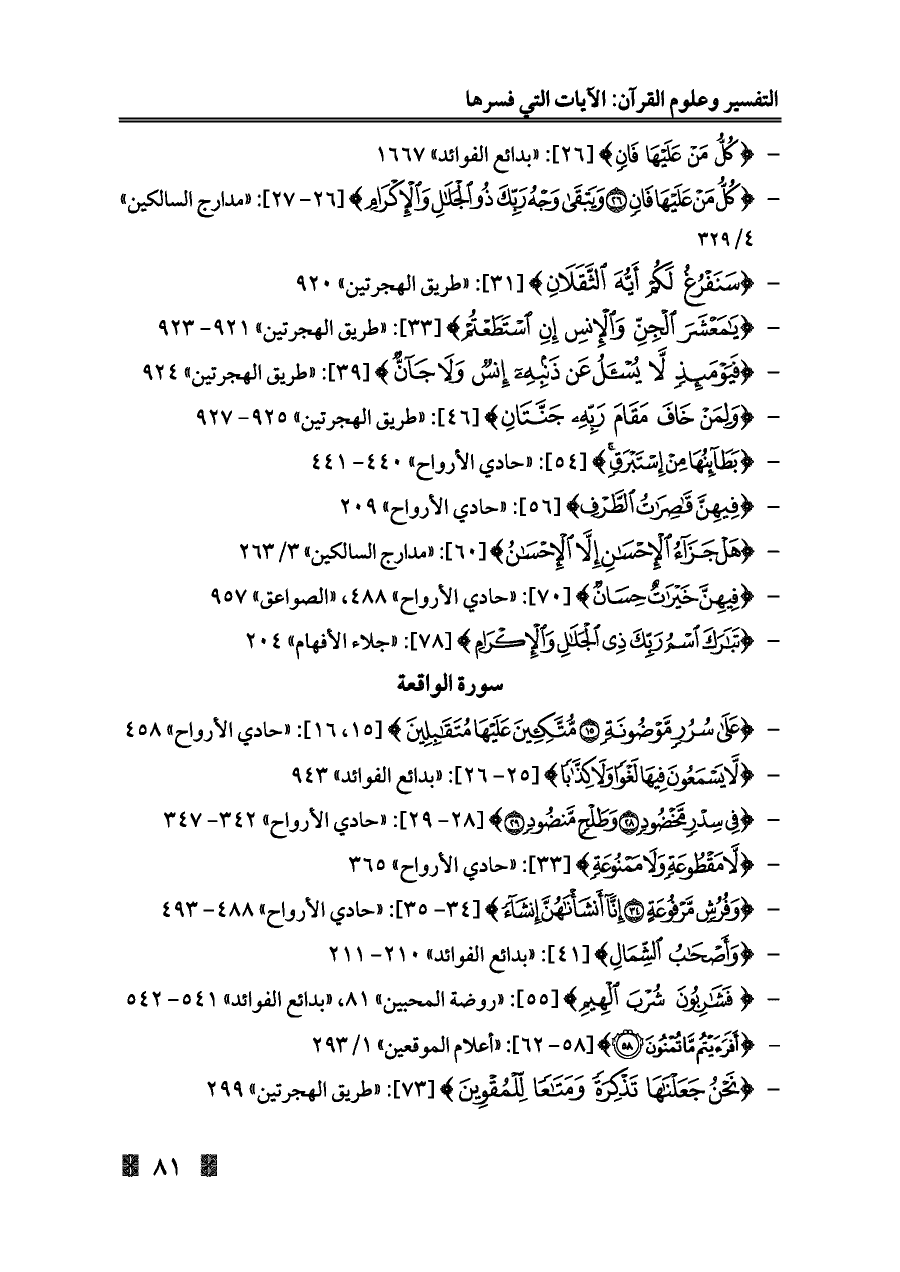 التفسير وعلوم القرآن: الآيات التي فسرها
- ﴿كُلُّ مَنْ عَلَيْهَا فَانٍ﴾ [٢٦]: «بدائع الفوائد» ١٦٦٧
- ﴿كُلُّ مَنْ عَلَيْهَا فَانٍ ٢٦ وَيَبْقَىٰ وَجْهُ رَبِّكَ ذُو ٱلْجَلَٰلِ وَٱلْإِكْرَامِ﴾ [٢٦- ٢٧]: «مدارج السالكين»
٤/ ٣٢٩
- ﴿سَنَفْرُغُ لَكُمْ أَيُّهَ ٱلثَّقَلَانِ﴾ [٣١]: «طريق الهجرتين» ٩٢٠
- ﴿يَٰمَعْشَرَ ٱلْجِنِّ وَٱلْإِنسِ إِنِ ٱسْتَطَعْتُمْ﴾ [٣٣]: «طريق الهجرتين» ٩٢١- ٩٢٣
- ﴿فَيَوْمَئِذٍ لَّا يُسْـَٔلُ عَن ذَنۢبِهِۦٓ إِنسٌ وَلَا جَآنٌّ﴾ [٣٩]: «طريق الهجرتين» ٩٢٤
- ﴿وَلِمَنْ خَافَ مَقَامَ رَبِّهِۦ جَنَّتَانِ﴾ [٤٦]: «طريق الهجرتين» ٩٢٥- ٩٢٧
- ﴿بَطَآئِنُهَا مِنْ إِسْتَبْرَقٍۚ﴾ [٥٤]: «حادي الأرواح» ٤٤٠- ٤٤١
- ﴿فِيهِنَّ قَٰصِرَٰتُ ٱلطَّرْفِ﴾ [٥٦]: «حادي الأرواح» ٢٠٩
- ﴿هَلْ جَزَآءُ ٱلْإِحْسَٰنِ إِلَّا ٱلْإِحْسَٰنُ﴾ [٦٠]: «مدارج السالكين» ٣/ ٢٦٣
- ﴿فِيهِنَّ خَيْرَٰتٌ حِسَانٌ﴾ [٧٠]: «حادي الأرواح» ٤٨٨، «الصواعق» ٩٥٧
- ﴿تَبَٰرَكَ ٱسْمُ رَبِّكَ ذِى ٱلْجَلَٰلِ وَٱلْإِكْرَامِ﴾ [٧٨]: «جلاء الأفهام» ٢٠٤
سورة الواقعة
- ﴿عَلَىٰ سُرُرٍ مَّوْضُونَةٍ ١٥ مُّتَّكِـِٔينَ عَلَيْهَا مُتَقَٰبِلِينَ﴾ [١٥، ١٦]: «حادي الأرواح» ٤٥٨
- ﴿لَّا يَسْمَعُونَ فِيهَا لَغْوًا وَلَا كِذَّٰبًا﴾ [٢٥- ٢٦]: «بدائع الفوائد» ٩٤٣
- ﴿فِى سِدْرٍ مَّخْضُودٍ ٢٨ وَطَلْحٍ مَّنضُودٍ ٢٩﴾ [٢٨- ٢٩]: «حادي الأرواح» ٣٤٢- ٣٤٧
- ﴿لَّا مَقْطُوعَةٍ وَلَا مَمْنُوعَةٍ﴾ [٣٣]: «حادي الأرواح» ٣٦٥
- ﴿وَفُرُشٍ مَّرْفُوعَةٍ ٣٤ إِنَّآ أَنشَأْنَٰهُنَّ إِنشَآءً﴾ [٣٤- ٣٥]: «حادي الأرواح» ٤٨٨- ٤٩٣
- ﴿وَأَصْحَٰبُ ٱلشِّمَالِ﴾ [٤١]: «بدائع الفوائد» ٢١٠- ٢١١
- ﴿فَشَٰرِبُونَ شُرْبَ ٱلْهِيمِ﴾ [٥٥]: «روضة المحبين» ٨١، «بدائع الفوائد» ٥٤١- ٥٤٢
- ﴿أَفَرَءَيْتُم مَّا تُمْنُونَ ٥٨﴾ [٥٨- ٦٢]: «أعلام الموقعين» ١/ ٢٩٣
- ﴿نَحْنُ جَعَلْنَٰهَا تَذْكِرَةً وَمَتَٰعًا لِّلْمُقْوِينَ﴾ [٧٣]: «طريق الهجرتين» ٢٩٩
٨١